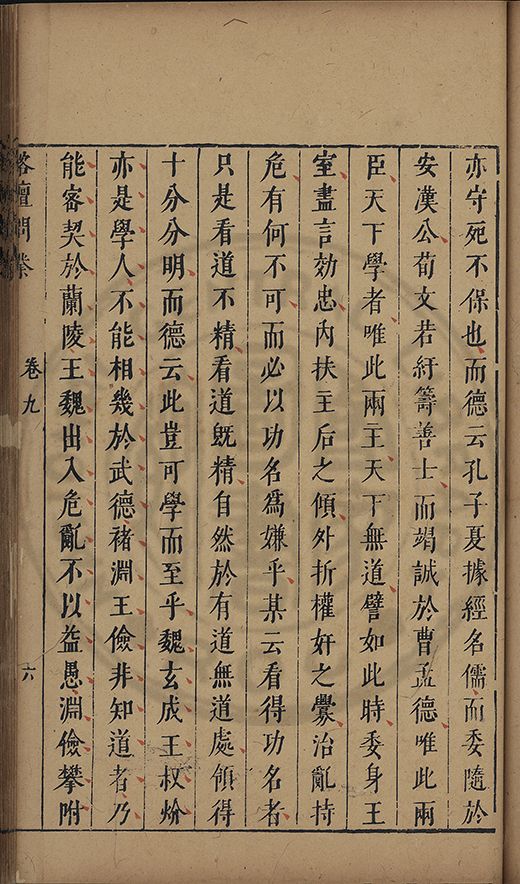 亦守死不保也而德云孔子夏據經名儒而委隨於
安漢公荀文若紆籌善士而竭誠於曹孟德唯此兩
臣天下學者唯此兩王天下無道譬如此時委身王
室盡言効忠内扶主后之傾外折權奸之釁治亂持
危有何不可而必以功名爲嫌乎某云看得功名者
只是看道不精看道既精自然於有道無道處領得
十分分明而德云此豈可學而至乎魏玄成王叔玠
亦是學人不能相幾於武德褚淵王儉非知道者乃
能密契於蘭陵王魏出入危亂不以益愚淵儉攀附
榕壇問業
卷九
六